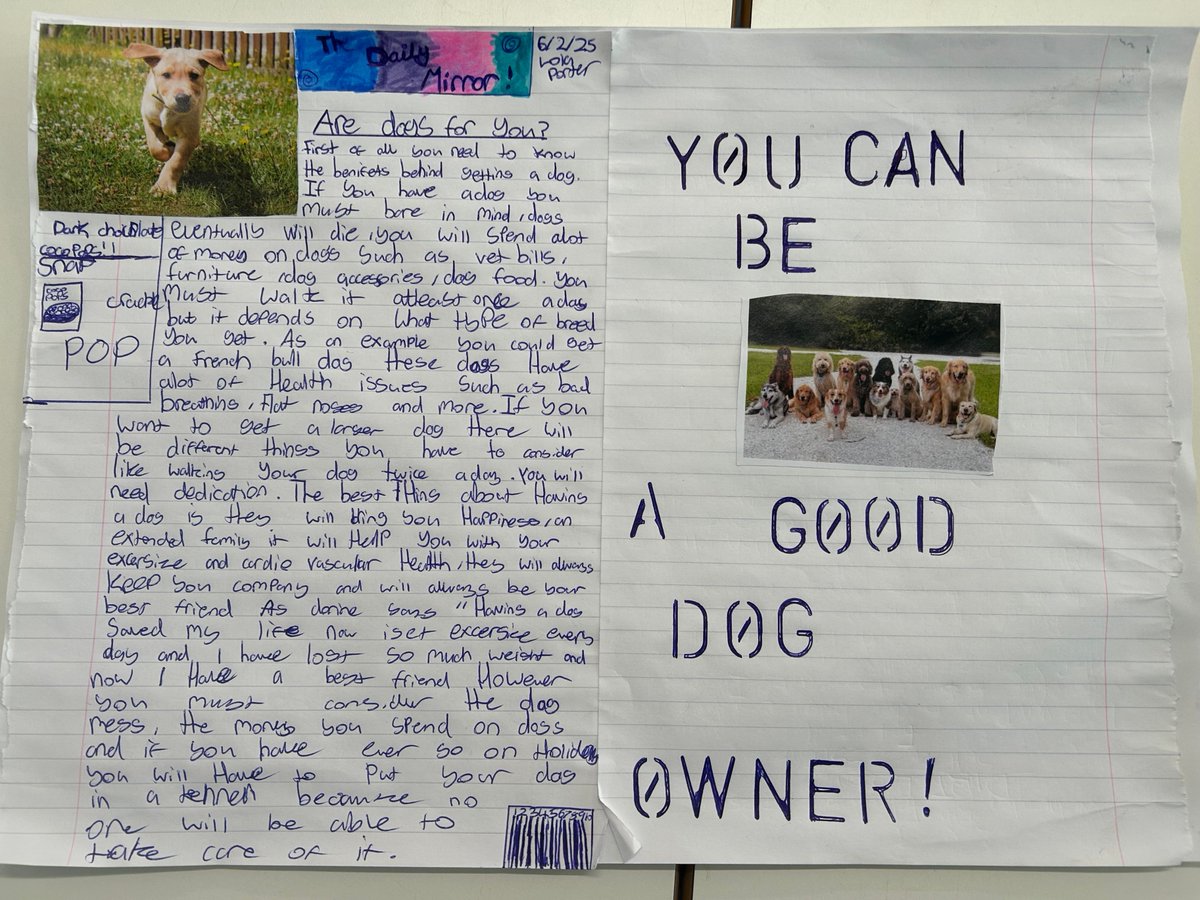 The Daily
Mirror!
6/2/25
Porter
Are dogs for you?
First of all you need to know
the benifets behind getting a dog.
If you have a dog you
must bare in mind, dogs
eventually will die, you will spend alot
of money on dogs such as vet bills,
furniture, dog accessories, dog food. You
Must walk it atleast once a day
but it depends on what type of breed
you get. As an example you could get
a french bull dog these dogs Have
alot of Health issues such as bad
breathing, flat noses and more. If you
want to get a larger dog there will
be different things you have to consider
like walking your dog twice a day. You will
need dedication. The best thing about Having
a dog is they will bring you Happiness, an
extended family it will HelP you with your
excersize and cardio vascular Health, they will always
Keep you company and will always be your
best friend As says "Having a dog
Saved my life now i get excersize every
day and I have lost so much weight and
now I Have a best friend However
you must consider the dog
mess, the money you spend on dogs
and if you have ever go on Holiday
you will Have to put your dog
in a kennel because no
one will be able to
take care of it.
Dark chocolate
cocopops!!
Snap
coco
pops
crackle
POP
12345678910
YOU CAN
BE
A GOOD
DOG
OWNER!